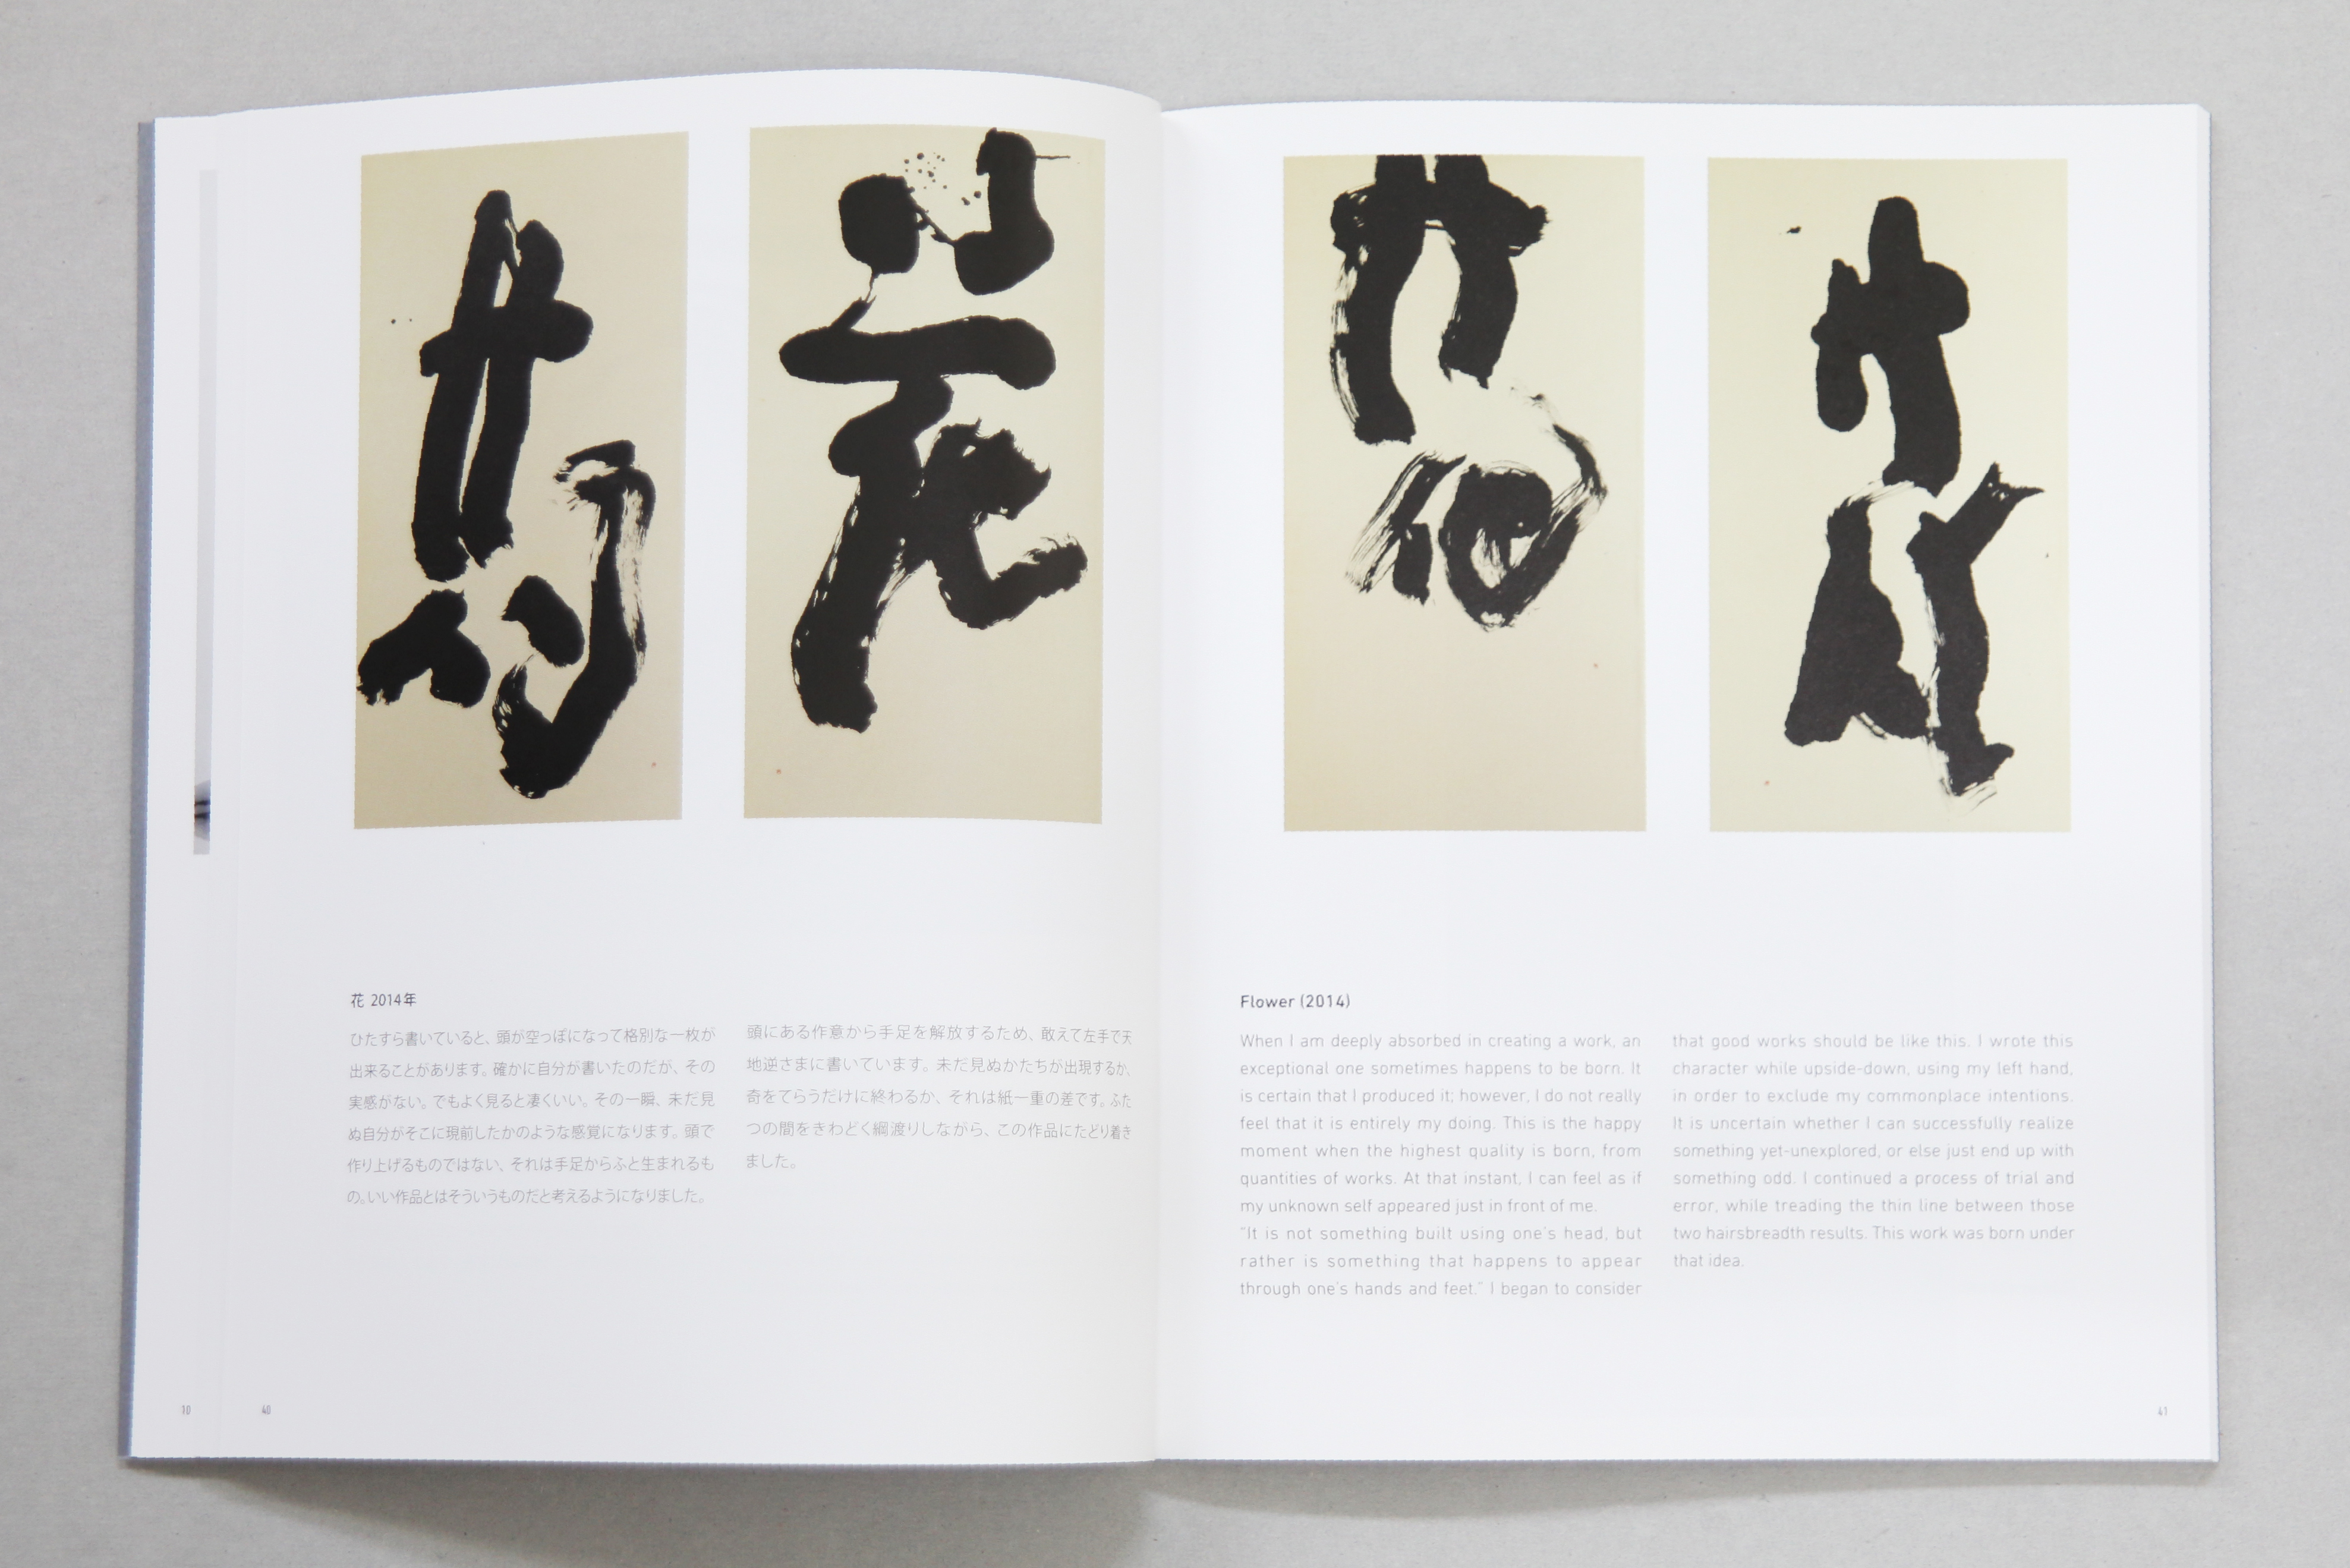 花 2014年
ひたすら書いていると、頭が空っぽになって格別な一枚が
出来ることがあります。確かに自分が書いたのだが、その
実感がない。でもよく見ると凄くいい。その一瞬、未だ見
ぬ自分がそこに現前したかのような感覚になります。頭で
作り上げるものではない、それは手足からふと生まれるも
の。いい作品とはそういうものだと考えるようになりました。
頭にある作意から手足を解放するため、敢えて左手で天
地逆さまに書いています。未だ見ぬかたちが出現するか、
奇をてらうだけに終わるか、それは紙一重の差です。ふた
つの間をきわどく綱渡りしながら、この作品にたどり着き
ました。
10
40
Flower (2014)
When I am deeply absorbed in creating a work, an
exceptional one sometimes happens to be born. It
is certain that I produced it; however, I do not really
feel that it is entirely my doing. This is the happy
moment when the highest quality is born, from
quantities of works. At that instant, I can feel as if
my unknown self appeared just in front of me.
"It is not something built using one's head, but
rather is something that happens to appear
through one's hands and feet." I began to consider
that good works should be like this. I wrote this
character while upside-down, using my left hand,
in order to exclude my commonplace intentions.
It is uncertain whether I can successfully realize
something yet-unexplored, or else just end up with
something odd. I continued a process of trial and
error, while treading the thin line between those
two hairsbreadth results. This work was born under
that idea.
41